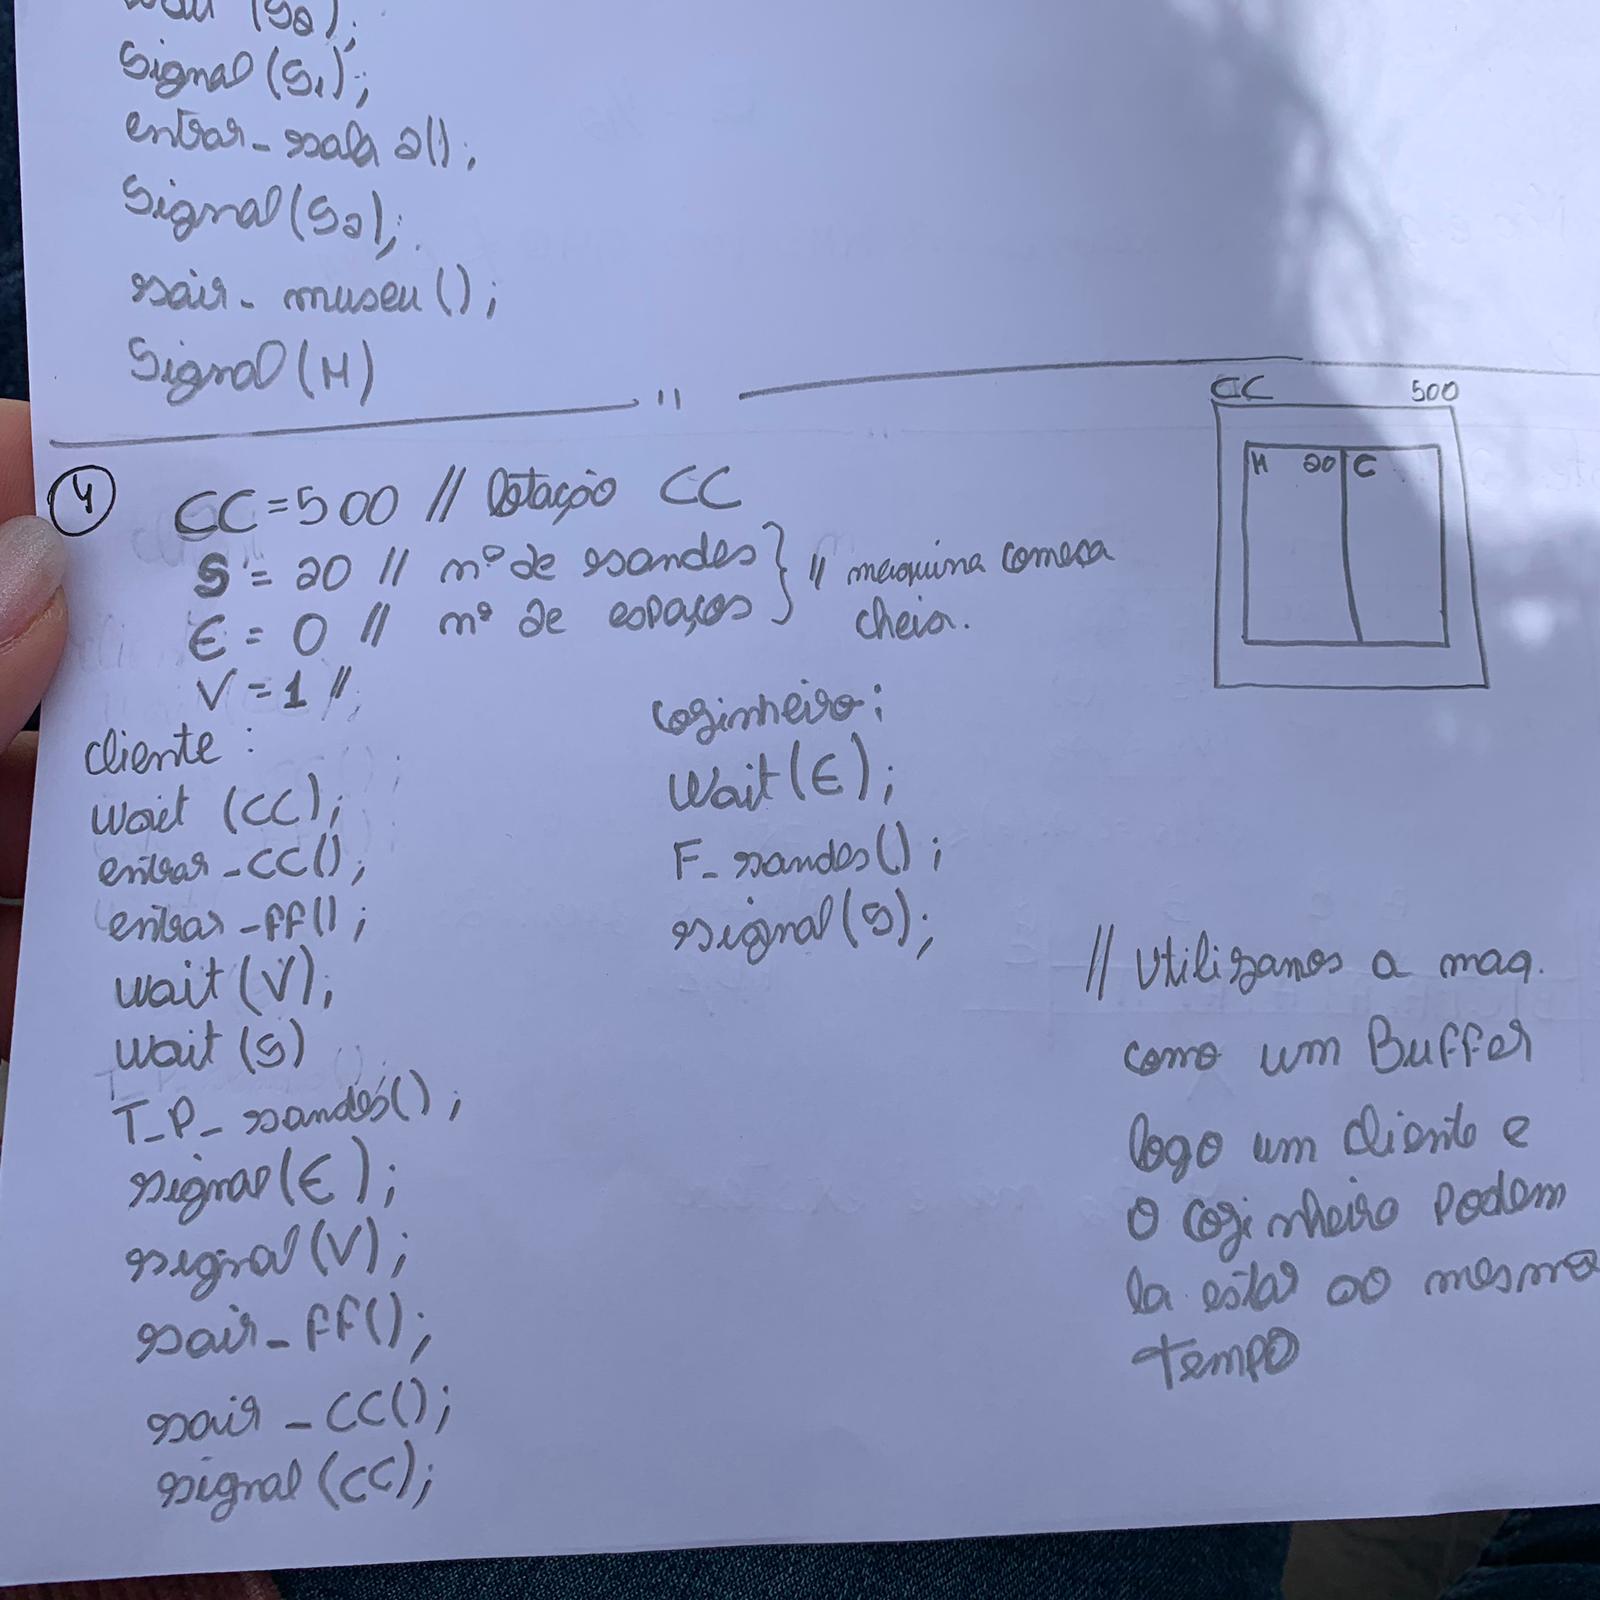 wait (S2);
Signal (S1);
entrar_sala 2();
Signal (S2);
sair_museu ();
Signal (M)
"
CC 500
M 20 C
4
CC = 500 // lotação CC
S = 20 // nº de sandes } // maquina começa
E = 0 // nº de espaços cheia.
V = 1 //
cliente :
wait (CC);
entrar_CC();
entrar_FF();
wait (V);
wait (S)
T_P_sandes();
signal (E);
signal (V);
sair_FF();
sair_CC();
signal (CC);
cozinheiro:
Wait (E);
F_sandes();
signal (S);
// Utilizamos a maq.
como um Buffer
logo um cliente e
o cozinheiro podem
la estar ao mesmo
tempo